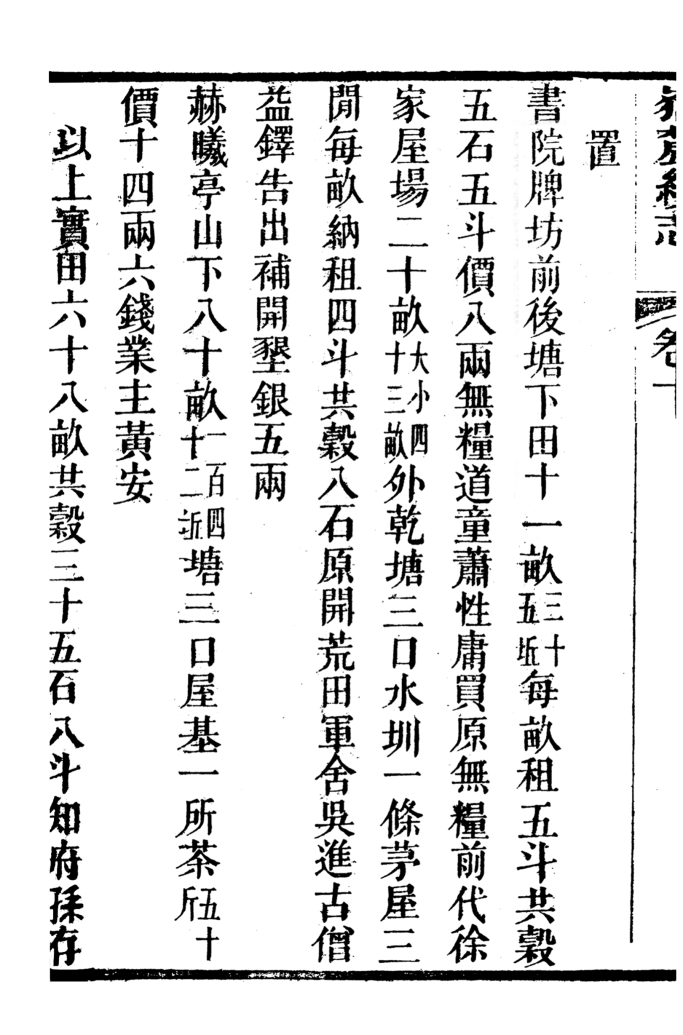 置
書院牌坊前後塘下田十一畝三十五坵每畝租五斗共穀
五石五斗價八兩無糧道童蕭性庸買原無糧前代徐
家屋場二十畝大小四十三畝外乾塘三口水圳一條茅屋三
間每畝納租四斗共穀八石原開荒田軍舍吳進古僧
益鐸告出補開墾銀五兩
赫曦亭山下八十畝一百四十二坵塘三口屋基一所茶五十斤
價十四兩六錢業主黃安
以上實田六十八畝共穀三十五石八斗知府孫存